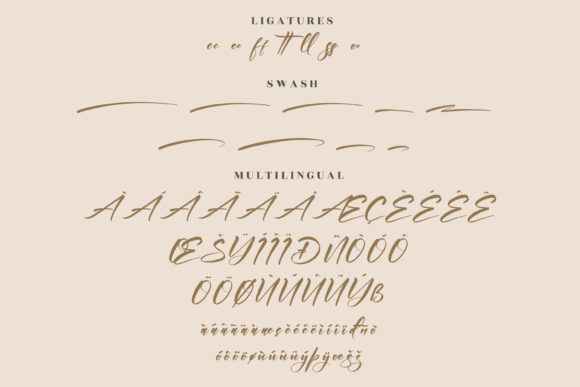 LIGATURES
cc ee ff tt ll ss oc
SWASH
MULTILINGUAL
ÀÁÂÃÄÅÆÇÈÉÊË
ŒŠŸÍÎÏÐÑÒÓÔ
ÕÖØÙÚÛÜÝß
àáâãäåæçèéêëìíîïđñò
óôõöøùúûüýþÿœšž